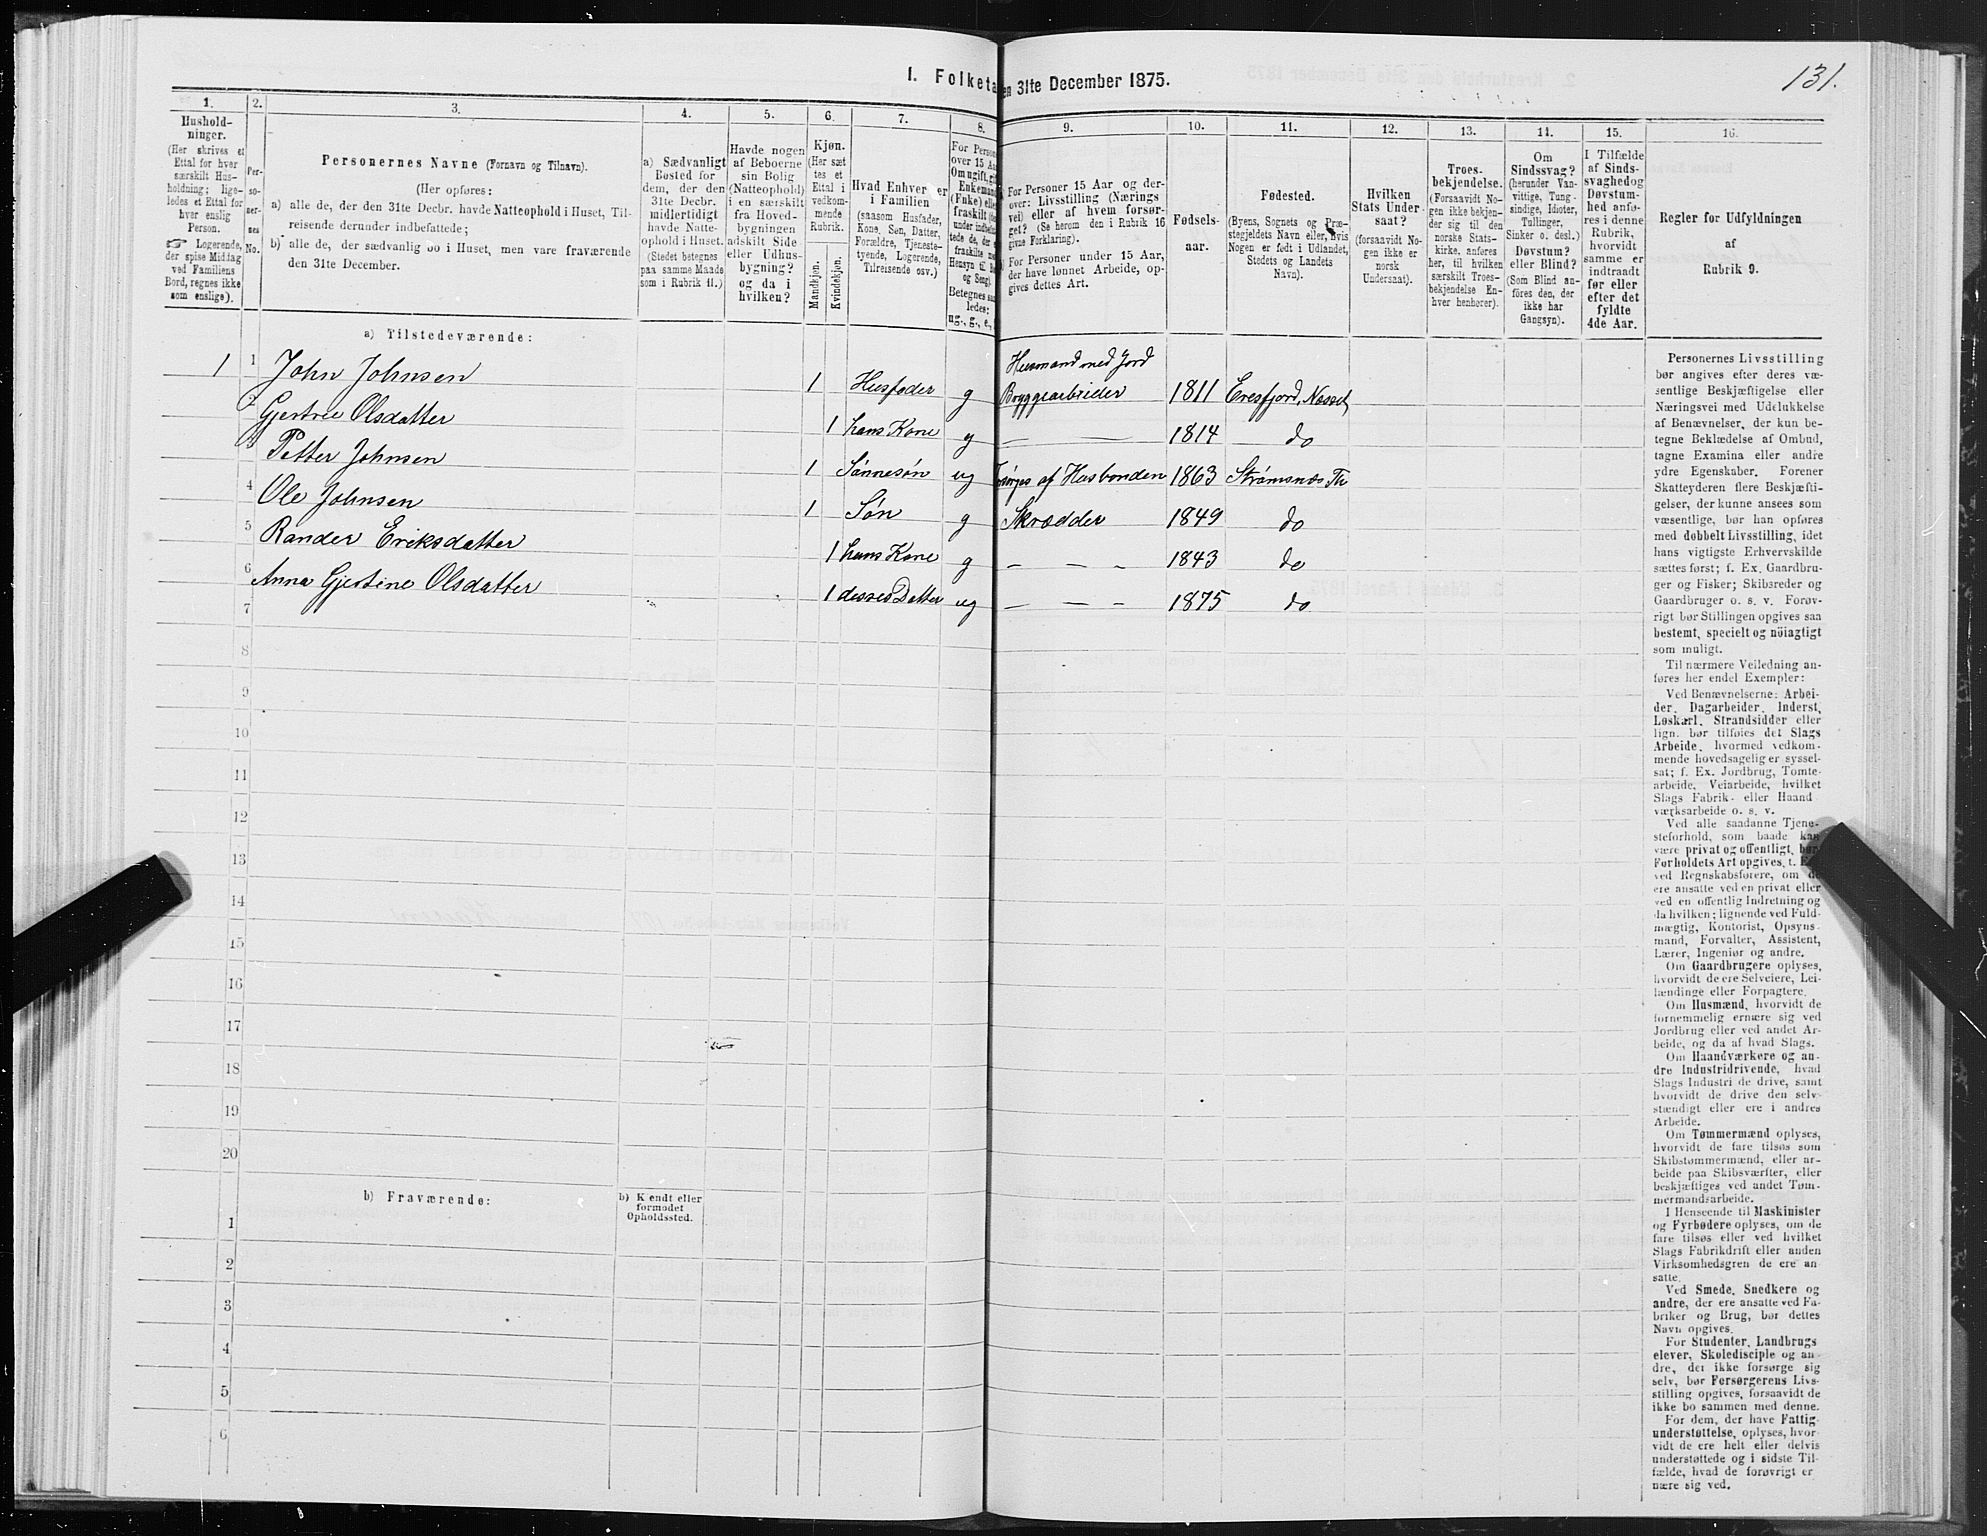 131.
1. Folketa en 31te December 1875.
1. 2. 3. 4. 5. 6. 7. 8. 9. 10. 11. 12. 13. 14. 15. 16.
Hushold-
ninger.
(Her skrives et
Ettal for hver
særskilt Hus-
holdning; lige-
ledes et Ettal for
hver enslig
Person.
☞ Logerende,
der spise Middag
ved Familiens
Bord, regnes ikke
som enslige).
Per-
so-
ner-
nes
No.
Personernes Navne (Fornavn og Tilnavn).
(Her opføres:
a) alle de, der den 31te Decbr. havde Natteophold i Huset, Til-
reisende derunder indbefattede;
b) alle de, der sædvanlig bo i Huset, men vare fraværende
den 31te December.
a) Sædvanligt
Bosted for
dem, der den
31te Decbr.
midlertidigt
havde Natte-
ophold i Huset.
(Stedet betegnes
paa samme Maade
som i Rubrik 11.)
Havde nogen
af Beboerne
sin Bolig
(Natteophold)
i en særskilt
fra Hoved-
bygningen
adskilt Side
eller Udhus-
bygning?
og da i
hvilken?
Kjøn.
(Her sæt
tes et
Ettal i
vedkom-
mende
Rubrik.
Mandkjøn.
Kvindekjøn.
Hvad Enhver er
i Familien
(saasom Husfader,
Kone, Søn, Datter,
Forældre, Tjeneste-
tyende, Logerende,
Tilreisende osv.)
For Person
over 15 Aa
Om ugift, gif
Enkeman
(Enke) elle
fraskilt (de
under indbefat
tede de, der e
fraskilte me
Hensyn til B
og Seng).
Betegnes saa
ledes:
ug., g., e.,
For Personer 15 Aar og der-
over: Livsstilling (Nærings
vei) eller af hvem forsør-
get? (Se herom den i Rubrik 16
givne Forklaring).
For Personer under 15 Aar,
der have lønnet Arbeide, op-
gives dettes Art.
Fødsels-
aar.
Fødested.
(Byens, Sognets og Præ-
stegjeldets Navn eller, hvis
Nogen er født i Udlandet,
Stedets og Landets
Navn).
Hvilken
Stats Under
saat?
(forsaavidt No-
gen ikke er
norsk
Undersaat).
Troes-
bekjendelse.
(Forsaavidt No-
gen ikke bekjen-
der sig til den
norske Stats-
kirke, anføres
her, til hvilken
særskilt Troes-
bekjendelse En-
hver henhører).
Om
Sindssvag?
(herunder Van-
vittige, Tung-
sindige, Idioter,
Tullinger,
Sinker o. desl.)
Døvstum?
eller Blind?
(Som Blind an-
føres den, der
ikke har
Gangsyn).
I Tilfælde
af Sinds-
svaghed og
Døvstum-
hed anfø-
res i denne
Rubrik,
hvorvidt
samme er
indtraadt
før eller
efter det
fyldte
4de Aar.
Regler for Udfyldningen
af
Rubrik 9.
a) Tilstedeværende:
Husmand med Jord
1 1 John Johnsen 1 Husfader g Bryggearbeider 1811 Eresfjord, Nesset
2 Gjertrue Olsdatter 1 hans Kone g — — 1814 do
3 Petter Johnsen 1 Sønnesøn ug af Husbonden 1863 Strømsnæs Th
4 Ole Johnsen 1 Søn g Skrædder 1849 do
5 Rander Eriksdatter 1 hans Kone g — — - 1843 do
6 Anna Gjertine Olsdatter 1 desses Datter ug — — - 1875 do
7
8
9
10
11
12
13
14
15
16
17
18
19
20
b) Fraværende:
b) Kjendt eller
formodet
Opholdssted.
1
2
3
4
5
6
Personernes Livsstilling
bør angives efter deres væ-
sentlige Beskjæftigelse eller
Næringsvei med Udelukkelse
af Benævnelser, der kun be-
tegne Beklædelse af Ombud,
tagne Examina eller andre
ydre Egenskaber. Forener
Skatteyderen flere Beskjæfti-
gelser, der kunne ansees som
væsentlige, bør han opføres
med dobbelt Livsstilling, idet
hans vigtigste Erhvervskilde
sættes først; f. Ex. Gaardbru-
ger og Fisker; Skibsreder og
Gaardbruger o. s. v. Forøv-
rigt bør Stillingen opgives saa
bestemt, specielt og nöiagtigt
som muligt.
Til nærmere Veiledning an-
føres her endel Exempler:
Ved Benævnelserne: Arbei-
der, Dagarbeider, Inderst,
Løskarl, Strandsidder eller
lign. bør tilføies det Slags
Arbeide, hvormed vedkom-
mende hovedsagelig er syssel-
sat; f. Ex. Jordbrug, Tomte-
arbeide, Veiarbeide, hvilket
Slags Fabrik- eller Haand
værksarbeide o. s. v.
Ved alle saadanne Tjene-
steforhold, som baade kan
være privat og offentligt, bør
Forholdets Art opgives, t. E
ved Regnskabsførere, om de
ere ansatte ved en privat eller
ved en offentlig Indretning og
da hvilken; lignende ved Fuld-
mægtig, Kontorist, Opsyns-
mand, Forvalter, Assistent,
Lærer, Ingeniør og andre.
Om Gaardbrugere oplyses,
hvorvidt de ere Selveiere, Lei-
lændinge eller Forpagtere.
Om Husmænd, hvorvidt de
fornemmelig ernære sig ved
Jordbrug eller ved andet Ar-
beide, og da af hvad Slags.
Om Haandværkere og an-
dre Industridrivende, hvad
Slags Industri de drive, samt
hvorvidt de drive den selv-
stændigt eller ere i andres
Arbeide.
Om Tømmermænd oplyses,
hvorvidt de fare tilsøs som
Skibstømmermænd, eller ar-
beide paa Skibsværfter, eller
beskjæftiges ved andet Tøm-
mermandsarbeide.
I Henseende til Maskinister
og Fyrbødere oplyses, om de
fare tilsøs eller ved hvilket
Slags Fabrikdrift eller anden
Virksomhedsgren de ere an
satte.
Ved Smede, Snedkere og
andre, der ere ansatte ved Fa-
briker og Brug, bør dettes
Navn opgives.
For Studenter, Landbrugs
elever, Skoledisciple og an-
dre, der ikke forsørge sig
selv, bør Forsørgerens Livs-
stilling opgives, forsaavidt de
ikke bo sammen med denne.
For dem, der have Fattig-
understøttelse, oplyses, hvor-
vidt de ere helt eller delvis
understøttede og i sidste Til-
fælde, hvad de forøvrigt er
nære sig ved.